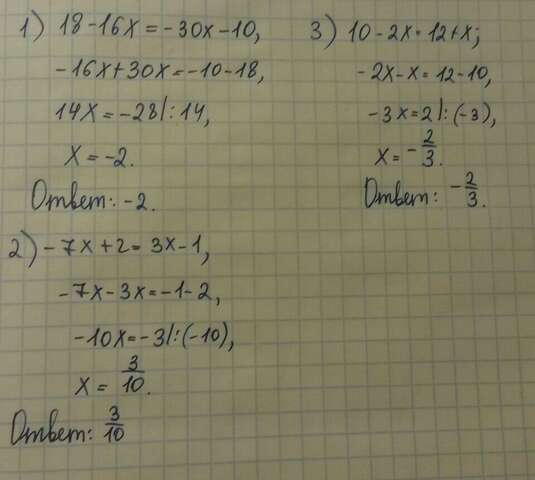 1) 18-16x=-30x-10,
-16x+30x=-10-18,
14x=-28|:14,
x=-2.
Ответ: -2.
2) -7x+2=3x-1,
-7x-3x=-1-2,
-10x=-3|:(-10),
x=3/10.
Ответ: 3/10
3) 10-2x=12+x;
-2x-x=12-10,
-3x=2|:(-3),
x=-2/3.
Ответ: -2/3.